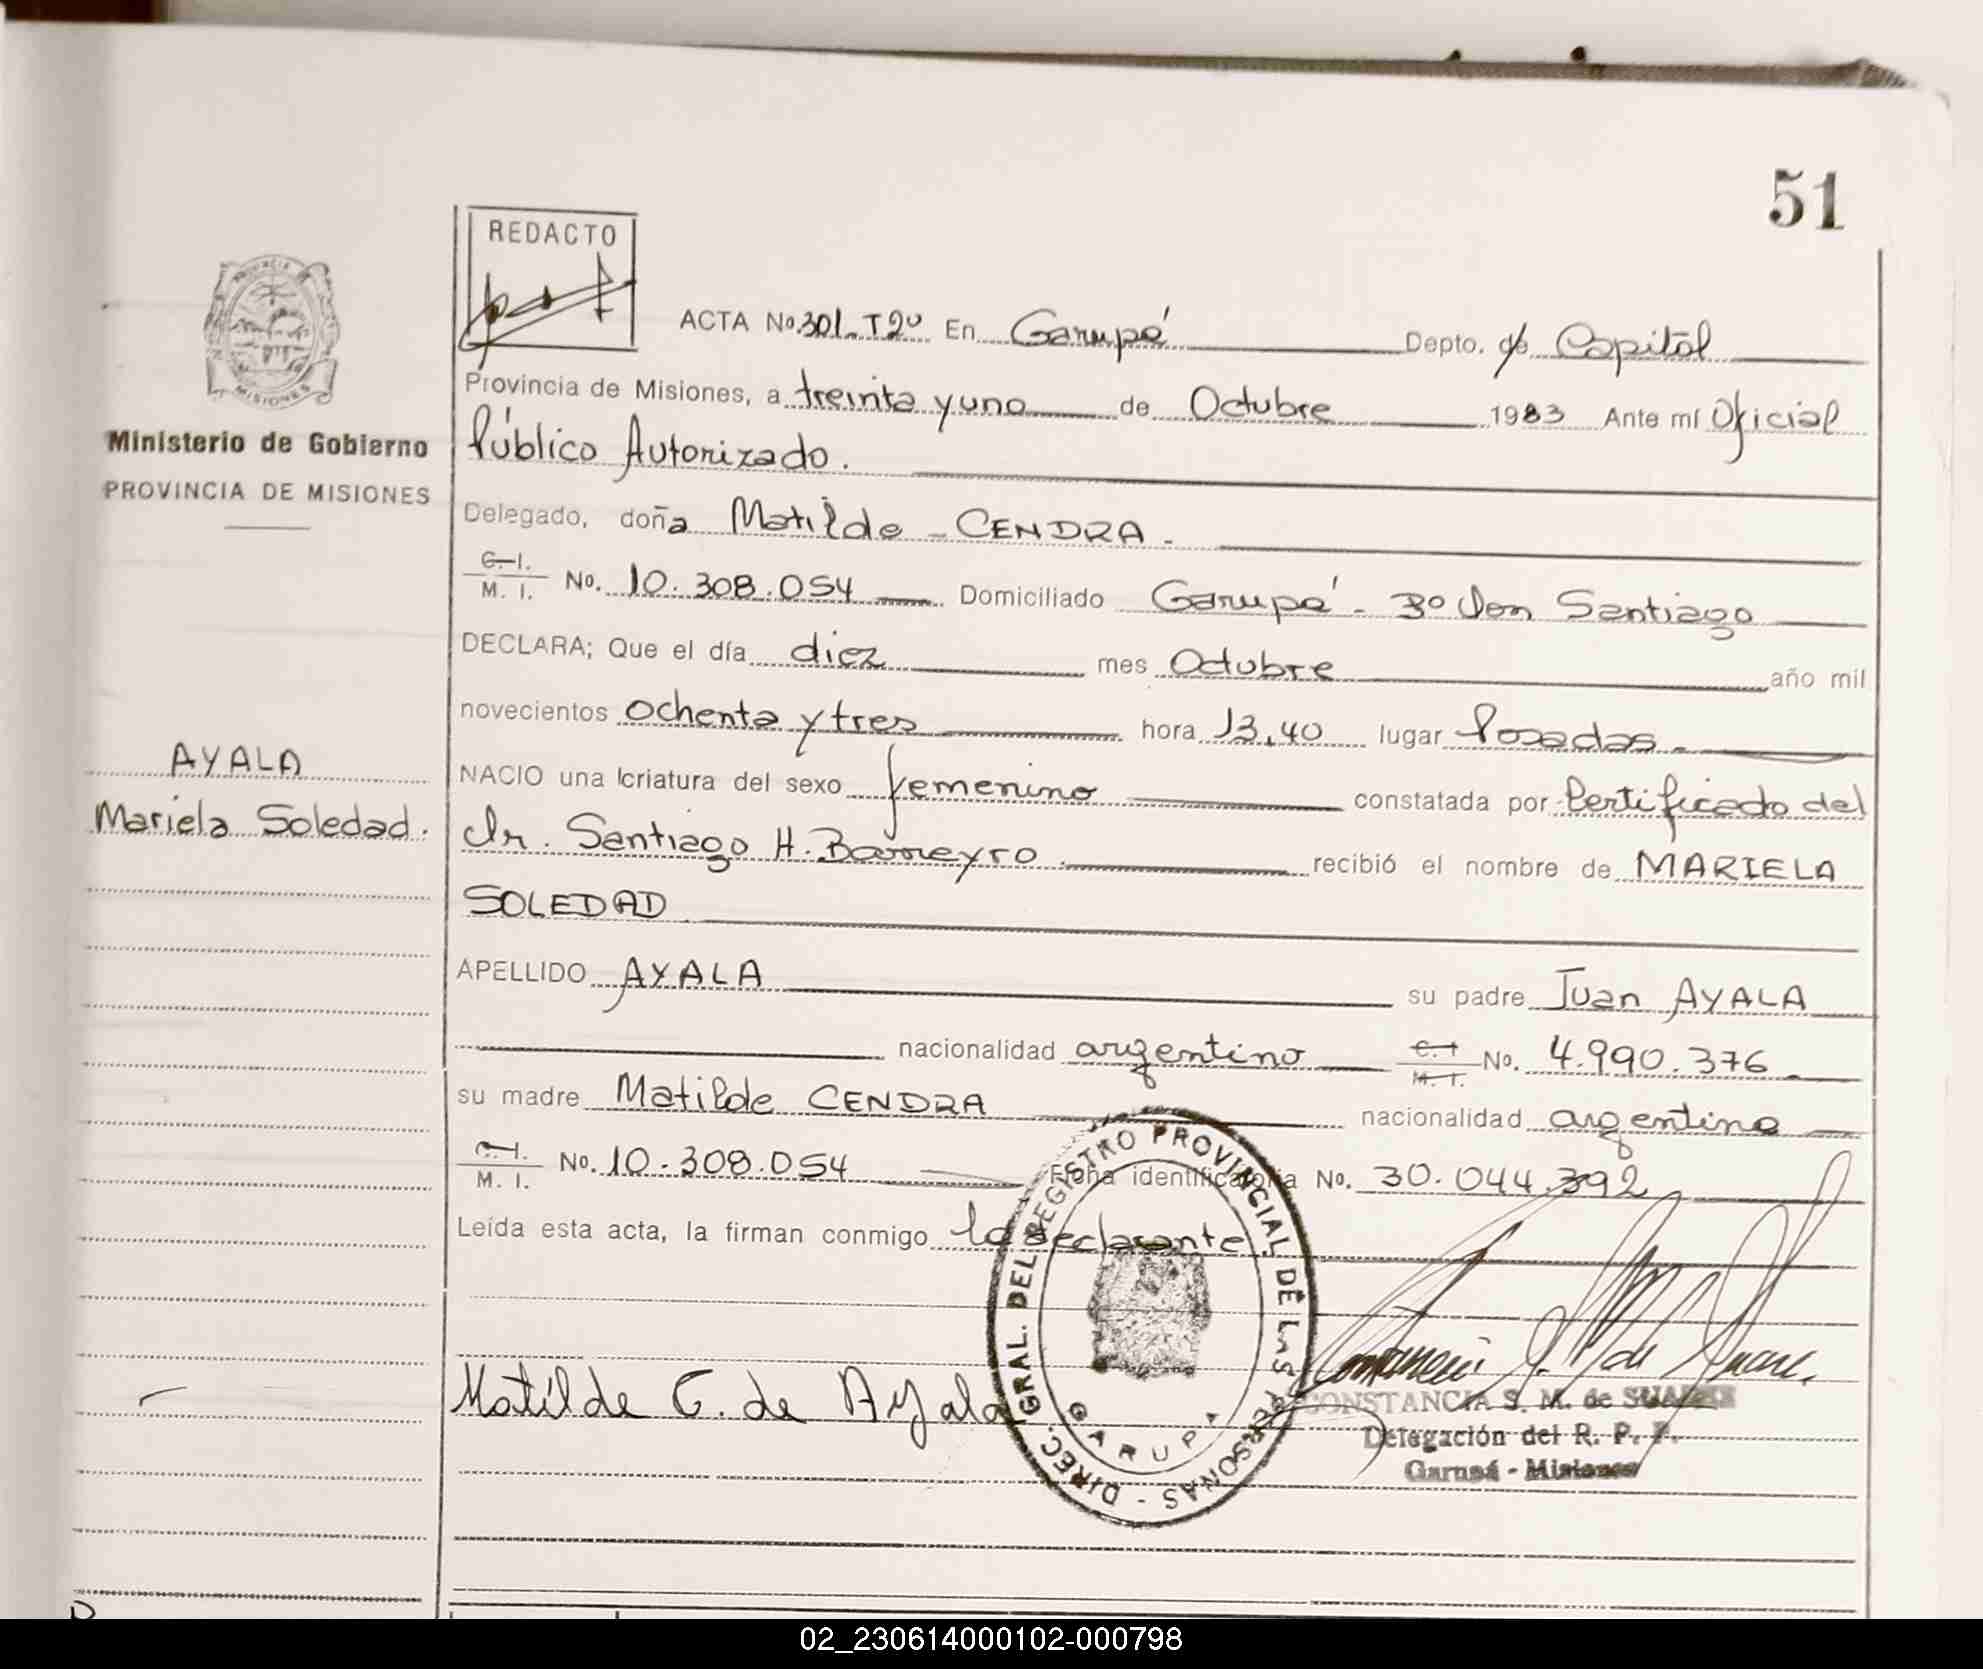 51
REDACTO
PROVINCIA DE
MISIONES
Ministerio de Gobierno
PROVINCIA DE MISIONES
AYALA
Mariela Soledad.
ACTA No. 301-T2º En Garupá Depto. de Capital
Provincia de Misiones, a treinta y uno de Octubre 1983 Ante mí Oficial
Público Autorizado.
Delegado, doña Matilde - CENDRA -
C. I.
M. I. No. 10.308.054 Domiciliado Garupá - Bº Don Santiago
DECLARA; Que el día diez mes Octubre año mil
novecientos ochenta y tres hora 13,40 lugar Posadas -
NACIO una criatura del sexo femenino constatada por Certificado del
Dr. Santiago H. Barreyro. recibió el nombre de MARIELA
SOLEDAD
APELLIDO AYALA su padre Juan AYALA
nacionalidad argentino C. I. M. I. No. 4.990.376
su madre Matilde CENDRA nacionalidad argentina
C. I.
M. I. No. 10.308.054 Ficha identificatoria No. 30.044.392
Leída esta acta, la firman conmigo la declarante.
Matilde C. de Ayala
DIREC. GRAL. DEL REGISTRO PROVINCIAL DE LAS PERSONAS -
GARUPA
CONSTANCIA S. M. de SUAREZ
Delegación del R. P. P.
Garupá - Misiones
02_230614000102-000798